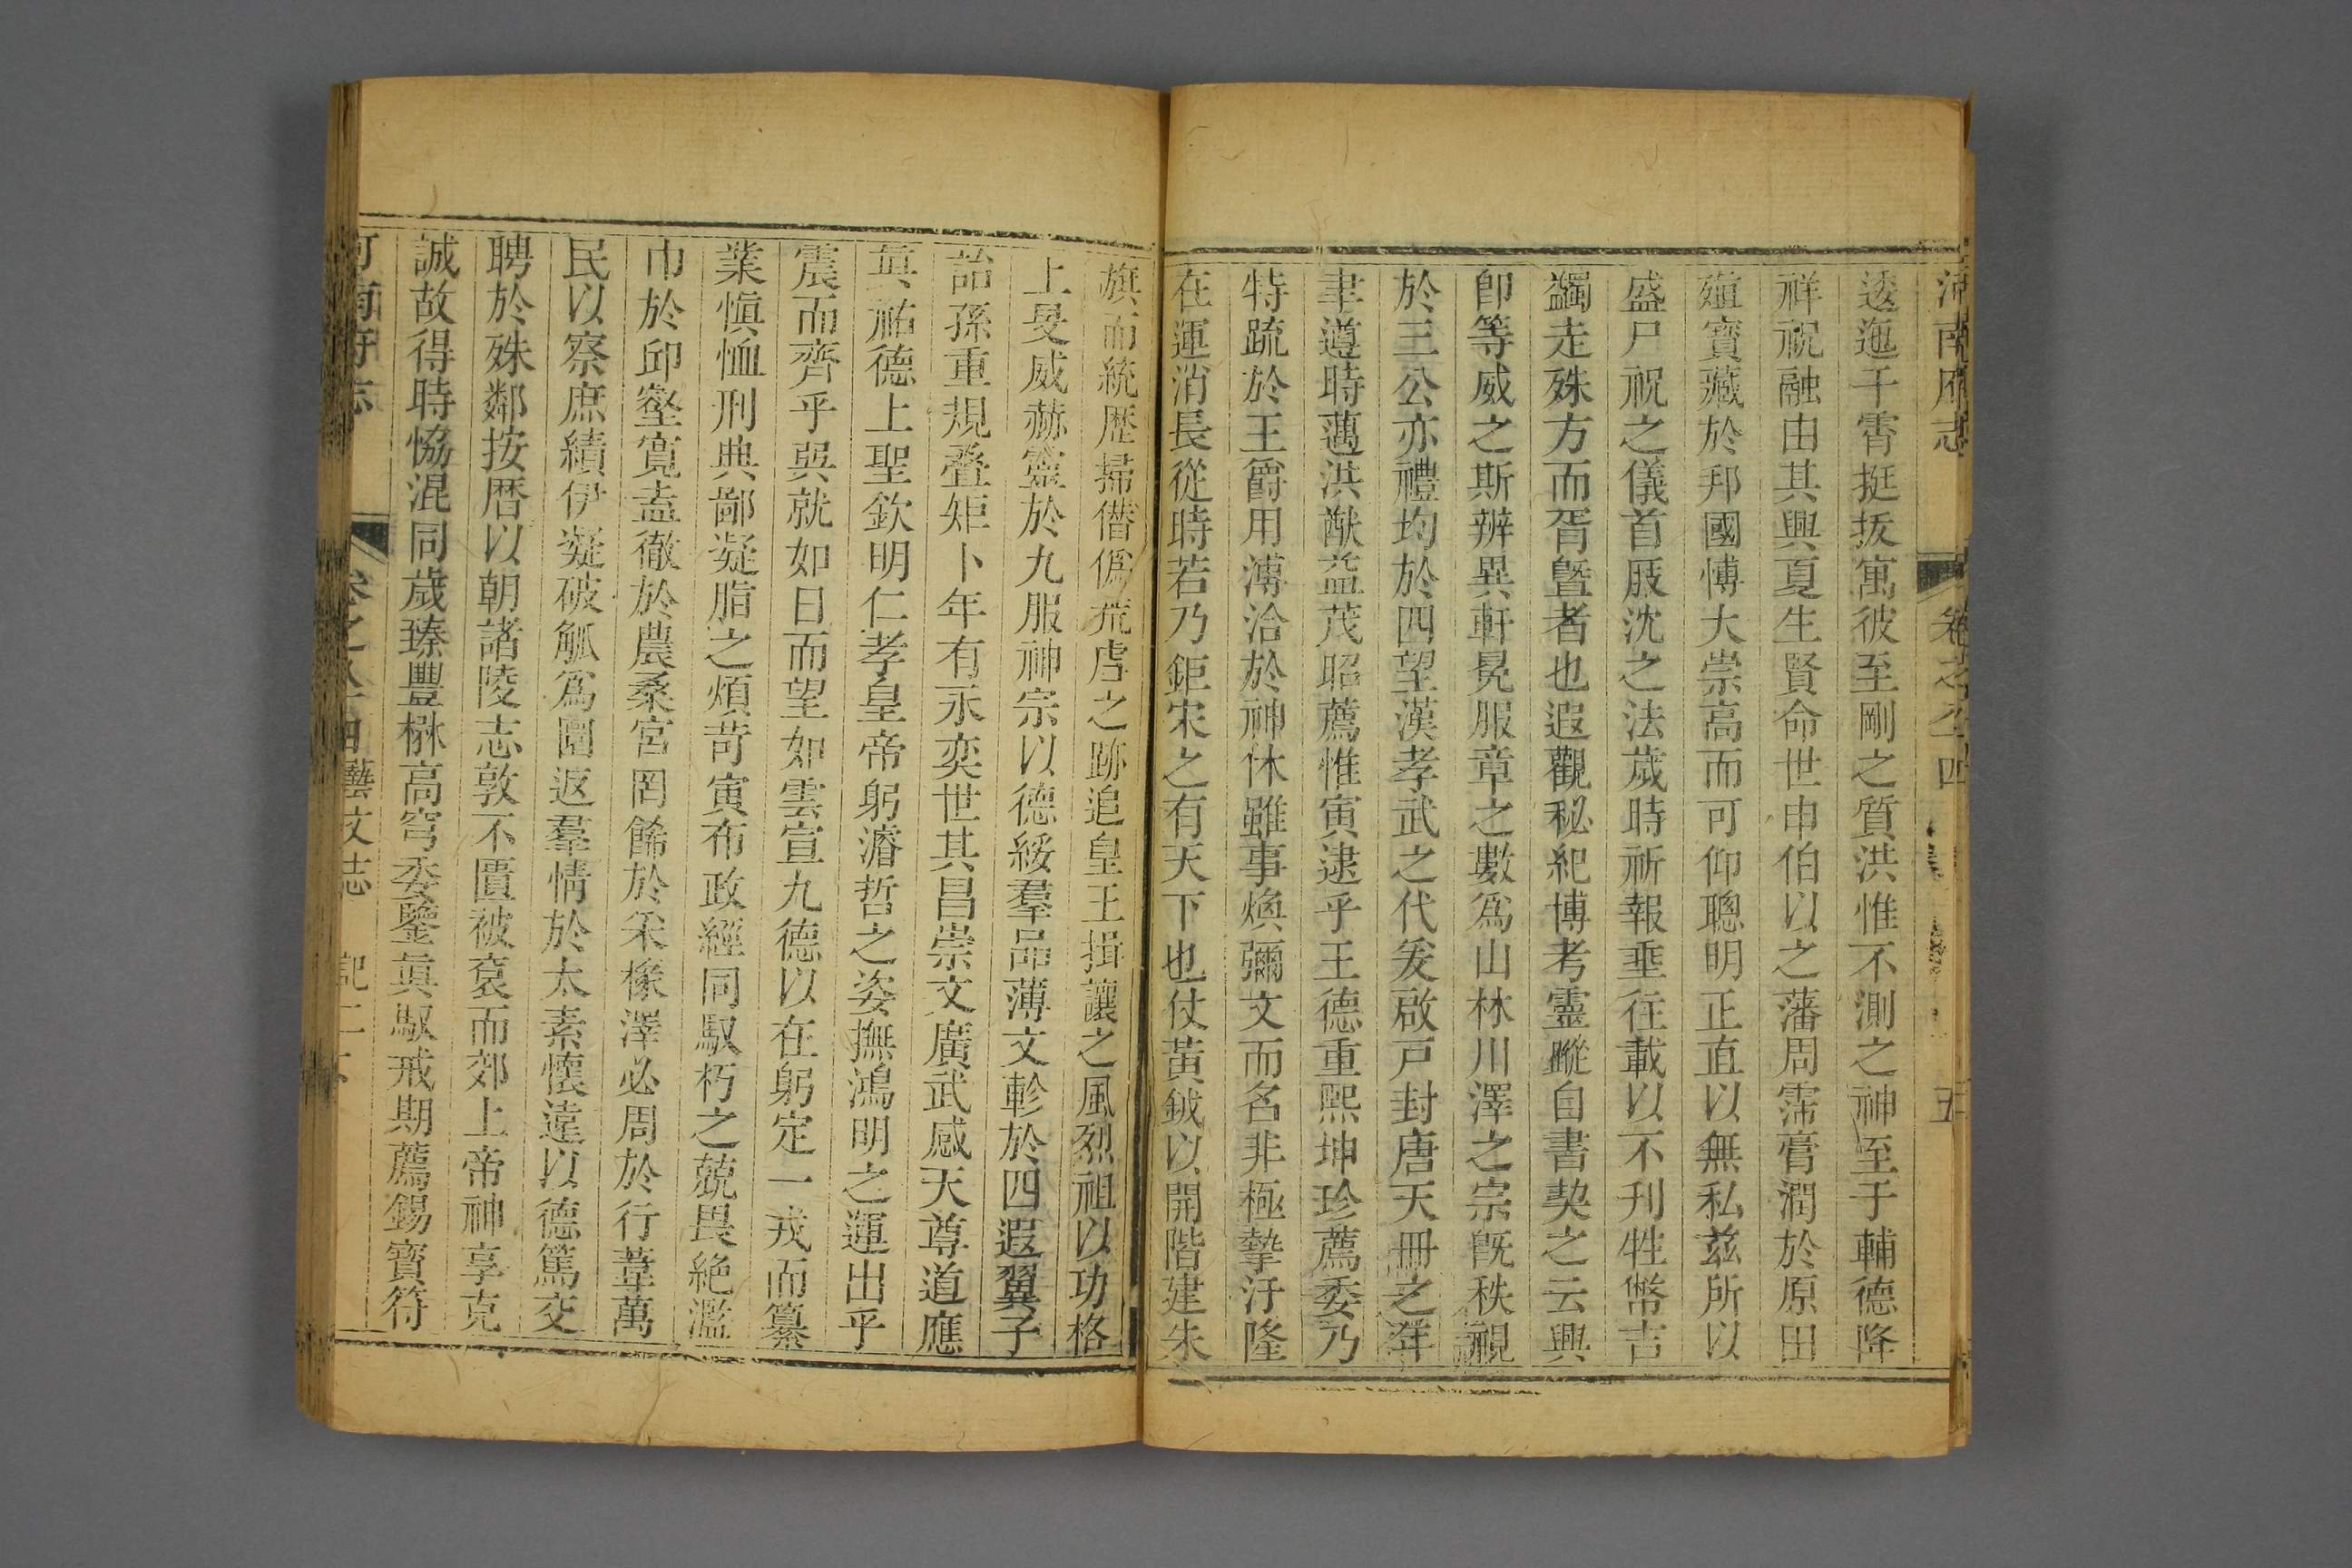 河南府志 卷之八十四 五
逶迤千霄挺拔寓彼至剛之質洪惟不測之神至于輔德降
祥祝融由其興夏生賢命世申伯以之藩周霈膏潤於原田
殖寶藏於邦國愽大崇高而可仰聰明正直以無私兹所以
盛尸祝之儀首屐沈之法歲時祈報垂往載以不刊牲幣吉
蠲走殊方而胥曁者也遐觀秘紀博考靈蹤自書契之云興
卽等威之斯辨異軒冕服章之數爲山林川澤之宗旣秩視
於三公亦禮均於四望漢孝武之代爰啟戸封唐天冊之
聿遵時邁洪猷益茂昭薦惟寅逮乎王德重熙坤珍薦委乃
特疏於王爵用溥洽於神休雖事煥彌文而名非極摯汙隆
在運消長從時若乃鉅宋之有天下也仗黃鉞以開階建朱
旗而統歷掃僣僞荒虐之跡追皇王揖讓之風烈祖以功格
上旻威赫靈於九服神宗以德綏羣品薄文軫於四遐翼子
詒孫重規叠矩卜年有永奕世其昌崇文廣武感天尊道應
眞祐德上聖欽明仁孝皇帝躬濬哲之姿撫鴻明之運出乎
震而齊乎巽就如日而望如雲宣九德以在躬定一戎而纂
業愼恤刑典鄙凝脂之煩苛寅布政經同馭朽之兢畏絶濫
巾於邱壑寛盍徹於農桑宮罔餙於采椽澤必周於行葦萬
民以察庶績伊凝破觚爲圜返羣情於太素懷遠以德篤交
聘於殊鄰按曆以朝諸陵志敦不匱被袞而郊上帝神享克
誠故得時恊混同歲臻豐楙高穹委鑒眞馭戒期薦錫寳符
河南府志 卷之八十四 藝文志 記二